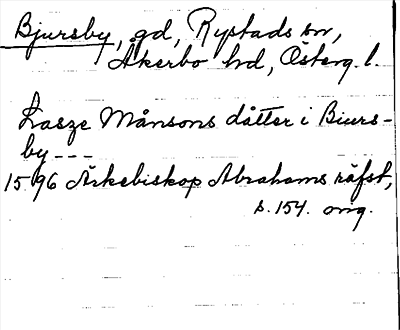 Bjursby, gd, Rystads sn,
Åkerbo hd, Österg. l.
Lasze Månsons dåtter i Biurs-
by ---
1596 Ärkebiskop Abrahams räfst,
s. 154. orig.